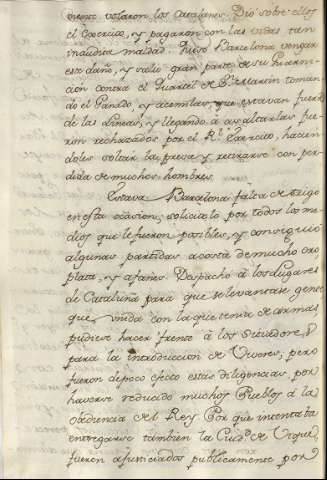 mente volaron los Catalanes. Dió sobre ellos
el Exercito, y pagaron con las vidas tan
inaudita maldad. Quiso Barcelona vengar
este daño, y salió gran parte de su Guarni-
cion contra el Quartel de Sn. Martin toman-
do el Ganado, y acemilas, que estavan fuera
de las lineas, y llegando à asaltarlas fue-
ron rechazados por el Rl. Exercito, hacien-
doles soltar la presa, y retirarse con per-
dida de muchos hombres.
Estava Barcelona falta de trigo
en esta ocasion, solicitalo por todos los me-
dios que le fueron posibles, y consiguió
algunas partidas a costa de mucho oro
plata, y afanes. Despachó à los Lugares
de Cataluña para que se levantase gente
que unida con la que tenia de armas
pudiese hacer frente à los Sitiadores, y
para la introduccion de Viveres; pero
fueron de poco efecto estas diligencias, por
haverse reducido muchos Pueblos à la
obediencia del Rey. Por que intentaba
entregarse tambien la Ciud. de Vique,
fueron ajusticiados publicamente por